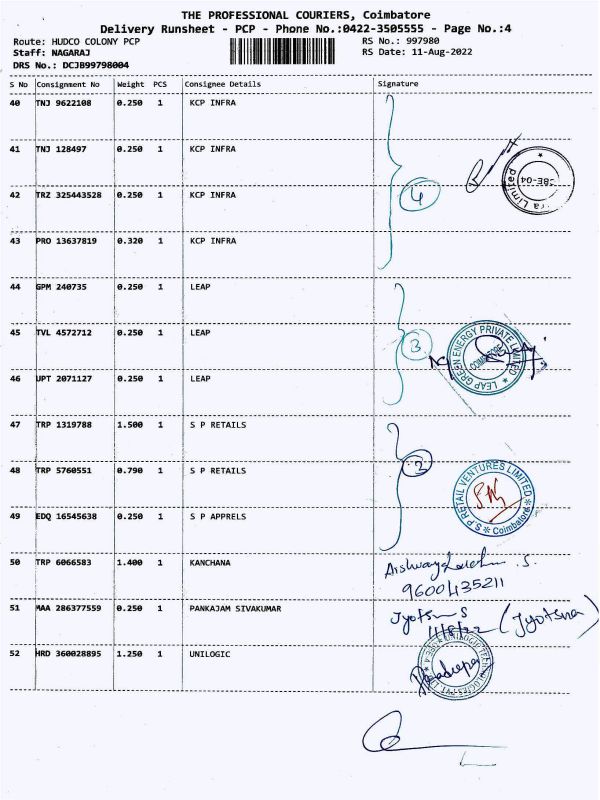 THE PROFESSIONAL COURIERS, Coimbatore
Delivery Runsheet - PCP - Phone No.:0422-3505555 - Page No.:4
Route: HUDCO COLONY PCP RS No.: 997980
Staff: NAGARAJ RS Date: 11-Aug-2022
DRS No.: DCJB99798004
S No Consignment No Weight PCS Consignee Details Signature
40 TNJ 9622108 0.250 1 KCP INFRA
41 TNJ 128497 0.250 1 KCP INFRA
42 TRZ 325443528 0.250 1 KCP INFRA
4
43 PRO 13637819 0.320 1 KCP INFRA
44 GPM 240735 0.250 1 LEAP
45 TVL 4572712 0.250 1 LEAP
3
LEAP GREEN ENERGY PRIVATE LIMITED
COIMBATORE
46 UPT 2071127 0.250 1 LEAP
47 TRP 1319788 1.500 1 S P RETAILS
48 TRP 5760551 0.790 1 S P RETAILS
2
S P RETAIL VENTURES LIMITED
Coimbatore
49 EDQ 16545638 0.250 1 S P APPRELS
50 TRP 6066583 1.400 1 KANCHANA
9600435211
51 MAA 286377559 0.250 1 PANKAJAM SIVAKUMAR
Jyotsna S (Jyotsna)
11/8/22
52 HRD 360028895 1.250 1 UNILOGIC